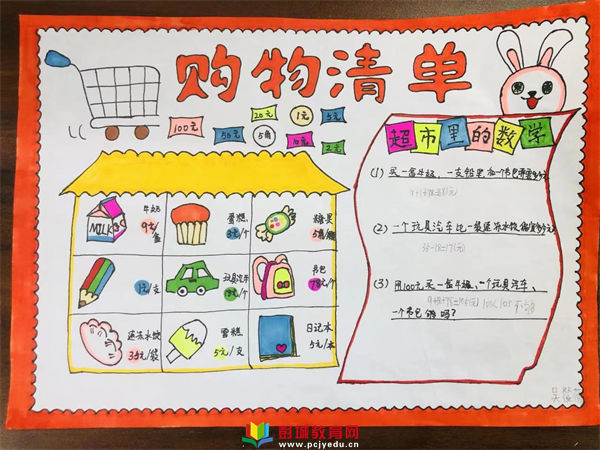 购物清单
100元
50元
20元
5角
1元
10元
5元
2元
MILK
牛奶
9元/盒
蛋糕
糖果
1元/支
玩具汽车
书包
78元/个
速冻水饺
35元/袋
雪糕
5元/支
日记本
5元/本
超市里的数学
(1) 买一盒牛奶、一支铅笔和一个书包需要多少元
(2) 一个玩具汽车比一袋速冻水饺便宜多少元
35-18=17(元)
(3) 用100元买一盒牛奶、一个玩具汽车、
一个书包够吗?
彭城教育网
www.pcjyedu.cn